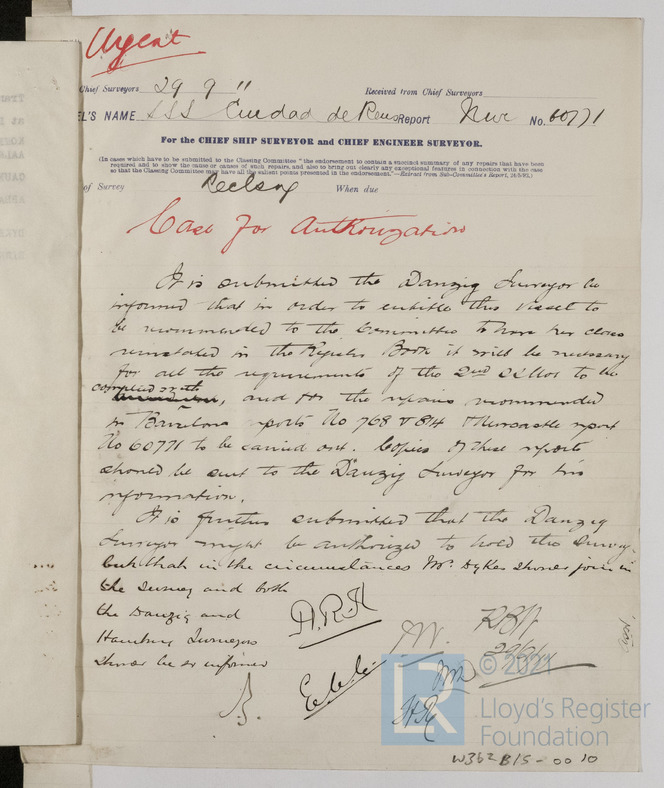 Urgent
Chief Surveyors 29 9 11 Received from Chief Surveyors
EL'S NAME SSS Ciudad de Reus Report Nwc No. 60771
For the CHIEF SHIP SURVEYOR and CHIEF ENGINEER SURVEYOR.
(In cases which have to be submitted to the Classing Committee "the endorsement to contain a succinct summary of any repairs that have been
required and to show the cause or causes of such repairs, and also to bring out clearly any exceptional features in connection with the case
so that the Classing Committee may have all the salient points presented in the endorsement."—Extract from Sub-Committee's Report,
of Survey Reclass When due
Case for Authorization
It is submitted the Danzig Surveyor be
informed that in order to entitle this vessel to
be recommended to the Committee to have her class
reinstated in the Register Book it will be necessary
for all the requirements of the 2nd SS No1 to be
complied with, and for the repairs recommended
in Barcelona reports No 768 & 814 & Newcastle report
No 60771 to be carried out. Copies of these reports
should be sent to the Danzig Surveyor for his
information.
It is further submitted that the Danzig
Surveyor might be authorized to hold the survey
but that in the circumstances Mr. Dykes should join in
the survey and both
the Danzig and
Hamburg Surveyors
should be so informed
A.R.H
LR
© 2021
Lloyd's Register
Foundation
W362B/5-0010